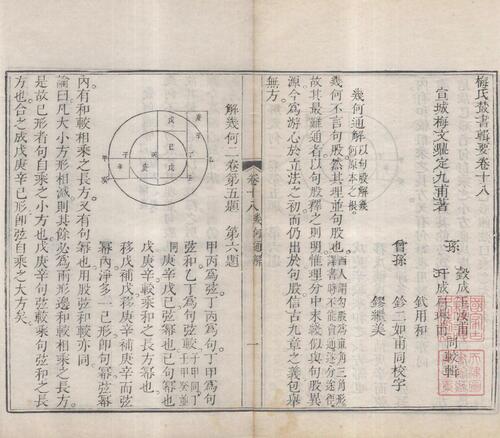 梅氏叢書輯要卷十八
宣城梅文鼎定九甫著
孫
瑴成
玕成
同較輯
曾孫
鈖二如甫同校字
鏐繼美
幾何通解 以句股解幾何原本之根
幾何不言句股然其理並句股也 西人謂句股為直角三角形譯書時不能會通遂分途徑
故其最難通者以句股釋之則明惟理分中末線似與句股異
源今為游心於立法之初而仍出於句股信古九章之義包舉
無方
卷十八 幾何通解
一
解幾何二卷第五題 第六題
甲丙為弦丁丙為句丁甲為句
弦和乙丁為句弦較
戊庚辛己弦冪也己句冪也
戊庚辛較乘和之長方冪也
移戊補戊移庚辛補庚辛而弦
冪內淨多一己形卽句冪弦冪
內有和較相乘之長方又有句冪也用股弦和較亦同
論曰凡大小方形相減則其餘必為兩形邊和較相乘之長方
是故己形者句自乘之小方也戊庚辛句弦較乘句弦和之長
方也合之成戊庚辛己形卽弦自乘之大方矣